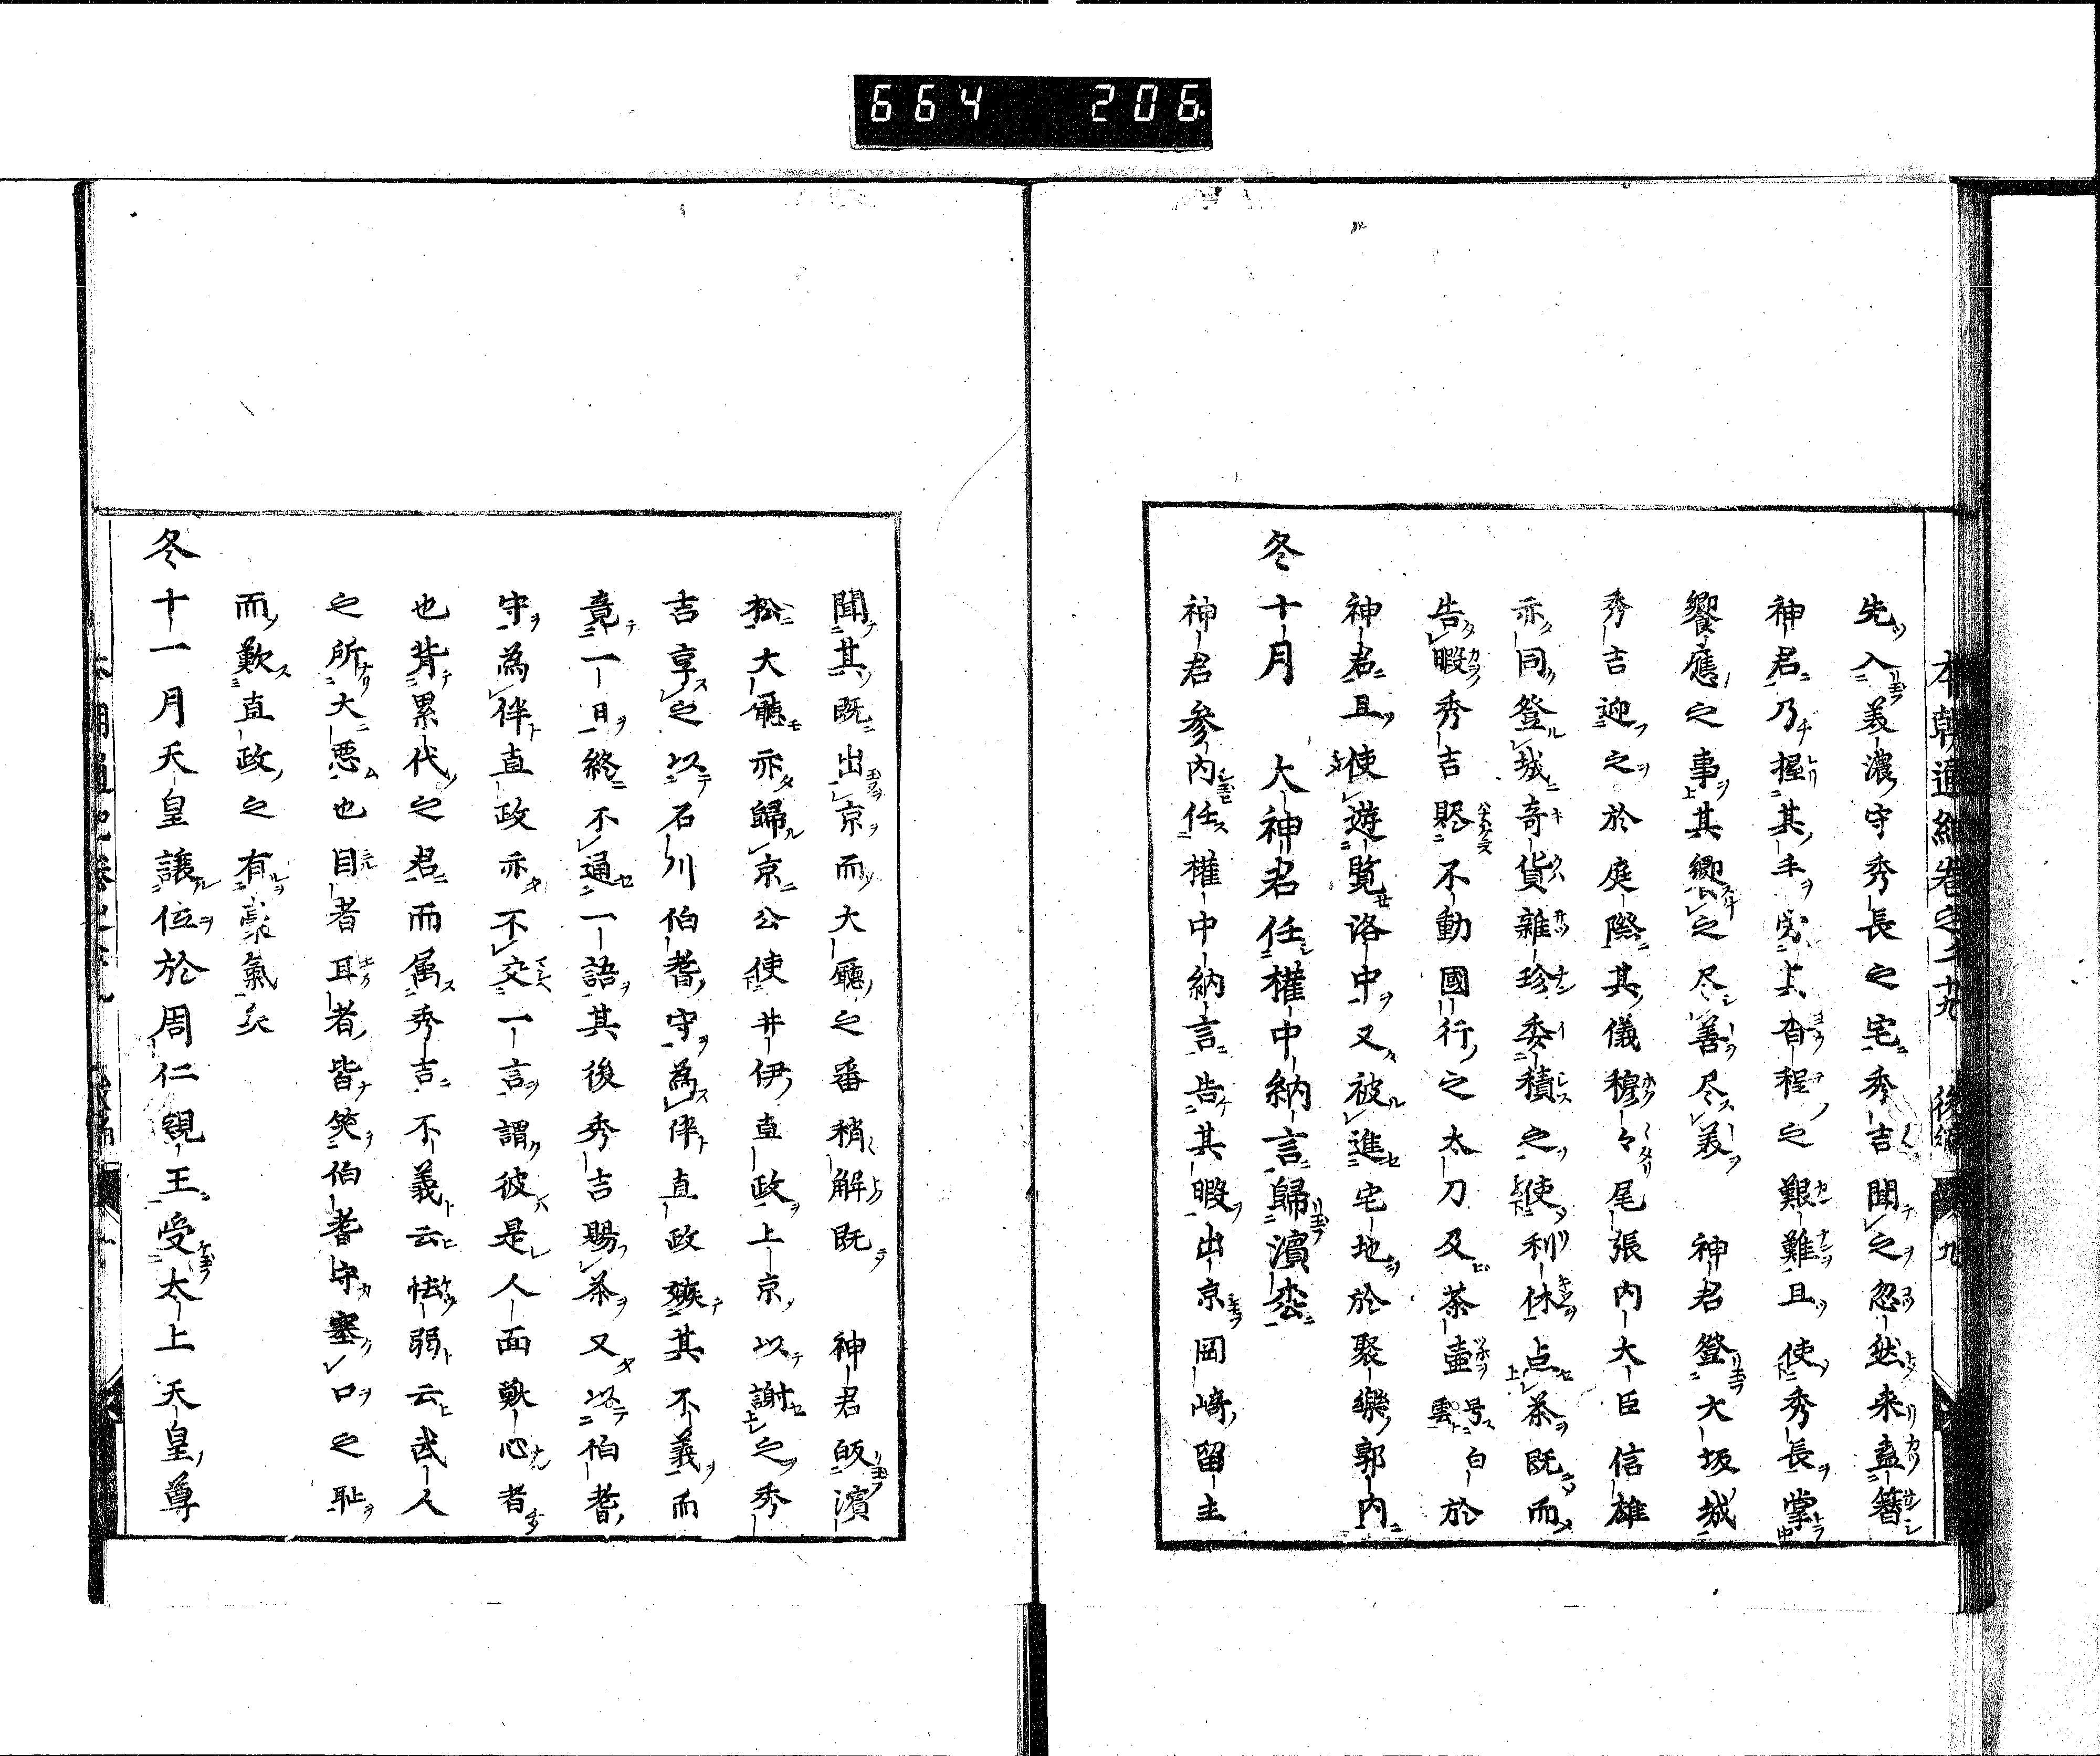 664 206
本朝通紀卷之二十九 後編 九
先入美濃守秀長之宅秀吉聞之忽然来盍簪
神君乃握其手労上沓程之艱難且使秀長掌
饗應之事其郷之尽善尽美 神君登大坂城
秀吉迎之於庭際其儀穆々尾張内大臣信雄
亦同登城奇貨雜珍委積之使利休点茶既而
告暇秀吉贐不動國行之太刀及茶壷号白雲於
神君且使遊覧洛中又被進宅地於聚樂郭内
冬十月 大神君任權中納言歸濱松
神君参内任權中納言告其暇出京岡﨑留主
聞其既出京而大廳之番稍解既 神君皈濱
松大廳亦歸京公使井伊直政上京以謝之秀
吉享之以石川伯耆守為伴直政嫉其不義而
竟一日終不通一語其後秀吉賜茶又以伯耆
守為伴直政亦不交一言謂彼是人面獸心者
也背累代之君而属秀吉不義云怯弱云武人
之所大悪也目者耳者皆笑伯耆守塞口之耻
而歎直政之有豪氣矣
冬十一月天皇讓位於周仁親王受太上天皇尊